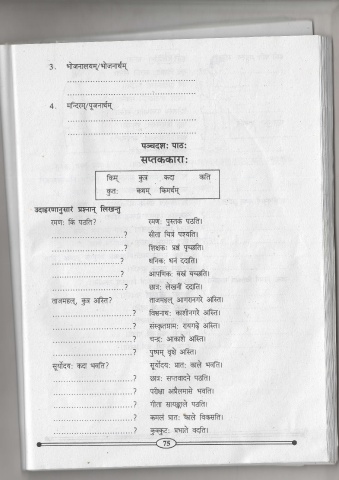 3. भोजनालयम्/भोजनार्थम्
4. मन्दिरम्/पूजनार्थम्
पञ्चदशः पाठः
सप्तककाराः
किम् कुत्र कदा कति
कुतः कथम् किमर्थम्
उदाहरणानुसारं प्रश्नान् लिखन्तु
रमणः किं पठति? रमणः पुस्तकं पठति।
? सीता चित्रं पश्यति।
? शिक्षकः प्रश्नं पृच्छति।
? धनिकः धनं ददाति।
? आपणिकः वस्त्रं यच्छति।
? छात्रः लेखनीं ददाति।
ताजमहल्, कुत्र अस्ति? ताजमहल् आगरानगरे अस्ति।
? विश्वनाथः काशीनगरे अस्ति।
? संस्कृतग्रामः रायगढ़े अस्ति।
? चन्द्रः आकाशे अस्ति।
? पुष्पम् वृक्षे अस्ति।
सूर्योदयः कदा भवति? सूर्योदयः प्रातः काले भवति।
? छात्रः सप्तवादने पठति।
? परीक्षा अप्रैलमासे भवति।
? गीता सायङ्काले पठति।
? कमलं प्रातः काले विकसति।
? कुक्कुटः प्रभाते वदति।
75